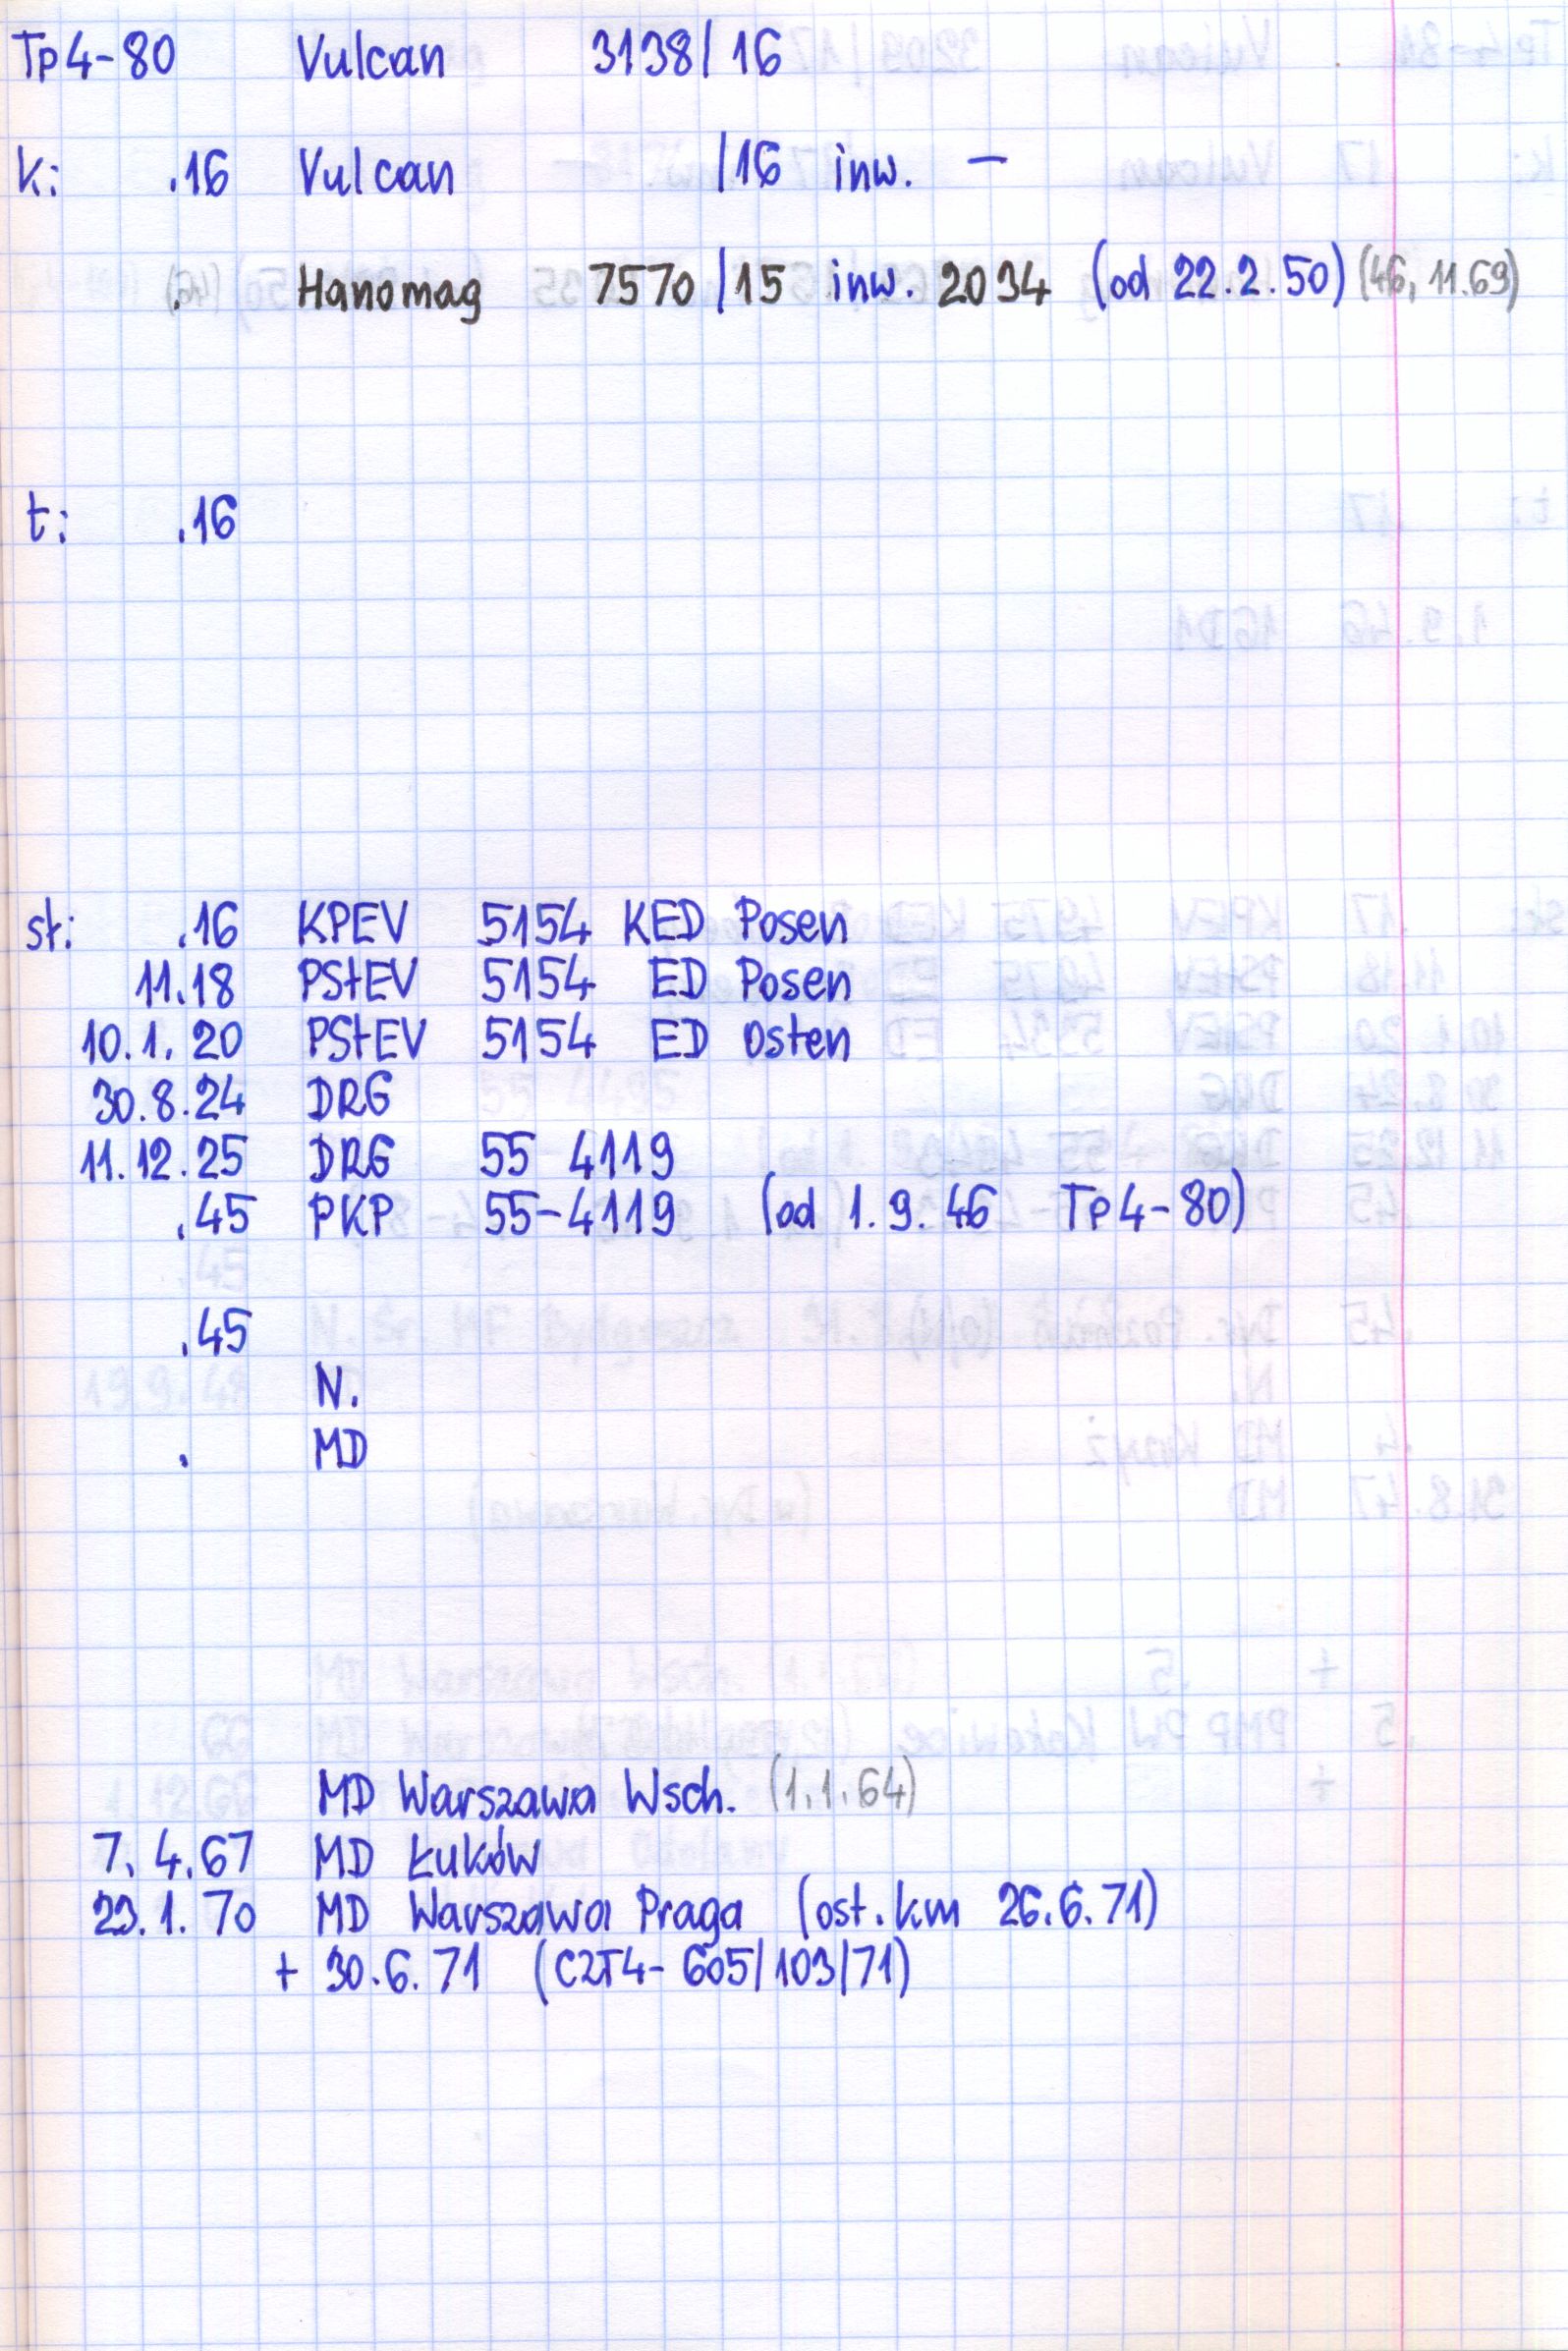 Tp4-80 Vulcan 3138/16
k: .16 Vulcan /16 inw. —
. Hanomag 7570/15 inw. 2034 (od 22.2.50) (46, 11.69)
t: .16
st: .16 KPEV 5154 KED Posen
11.18 PStEV 5154 ED Posen
10.1.20 PStEV 5154 ED Osten
30.8.24 DRG
11.12.25 DRG 55 4119
.45 PKP 55-4119 (od 1.9.46 Tp4-80)
.45
N.
. MD
MD Warszawa Wsch. (1.1.64)
7.4.67 MD Łuków
23.1.70 MD Warszawa Praga (ost.km 26.6.71)
+ 30.6.71 (C2T4-605/103/71)